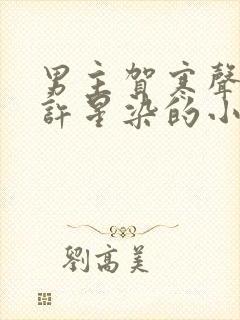 男主賀寒聲
許星染的小
劉高美